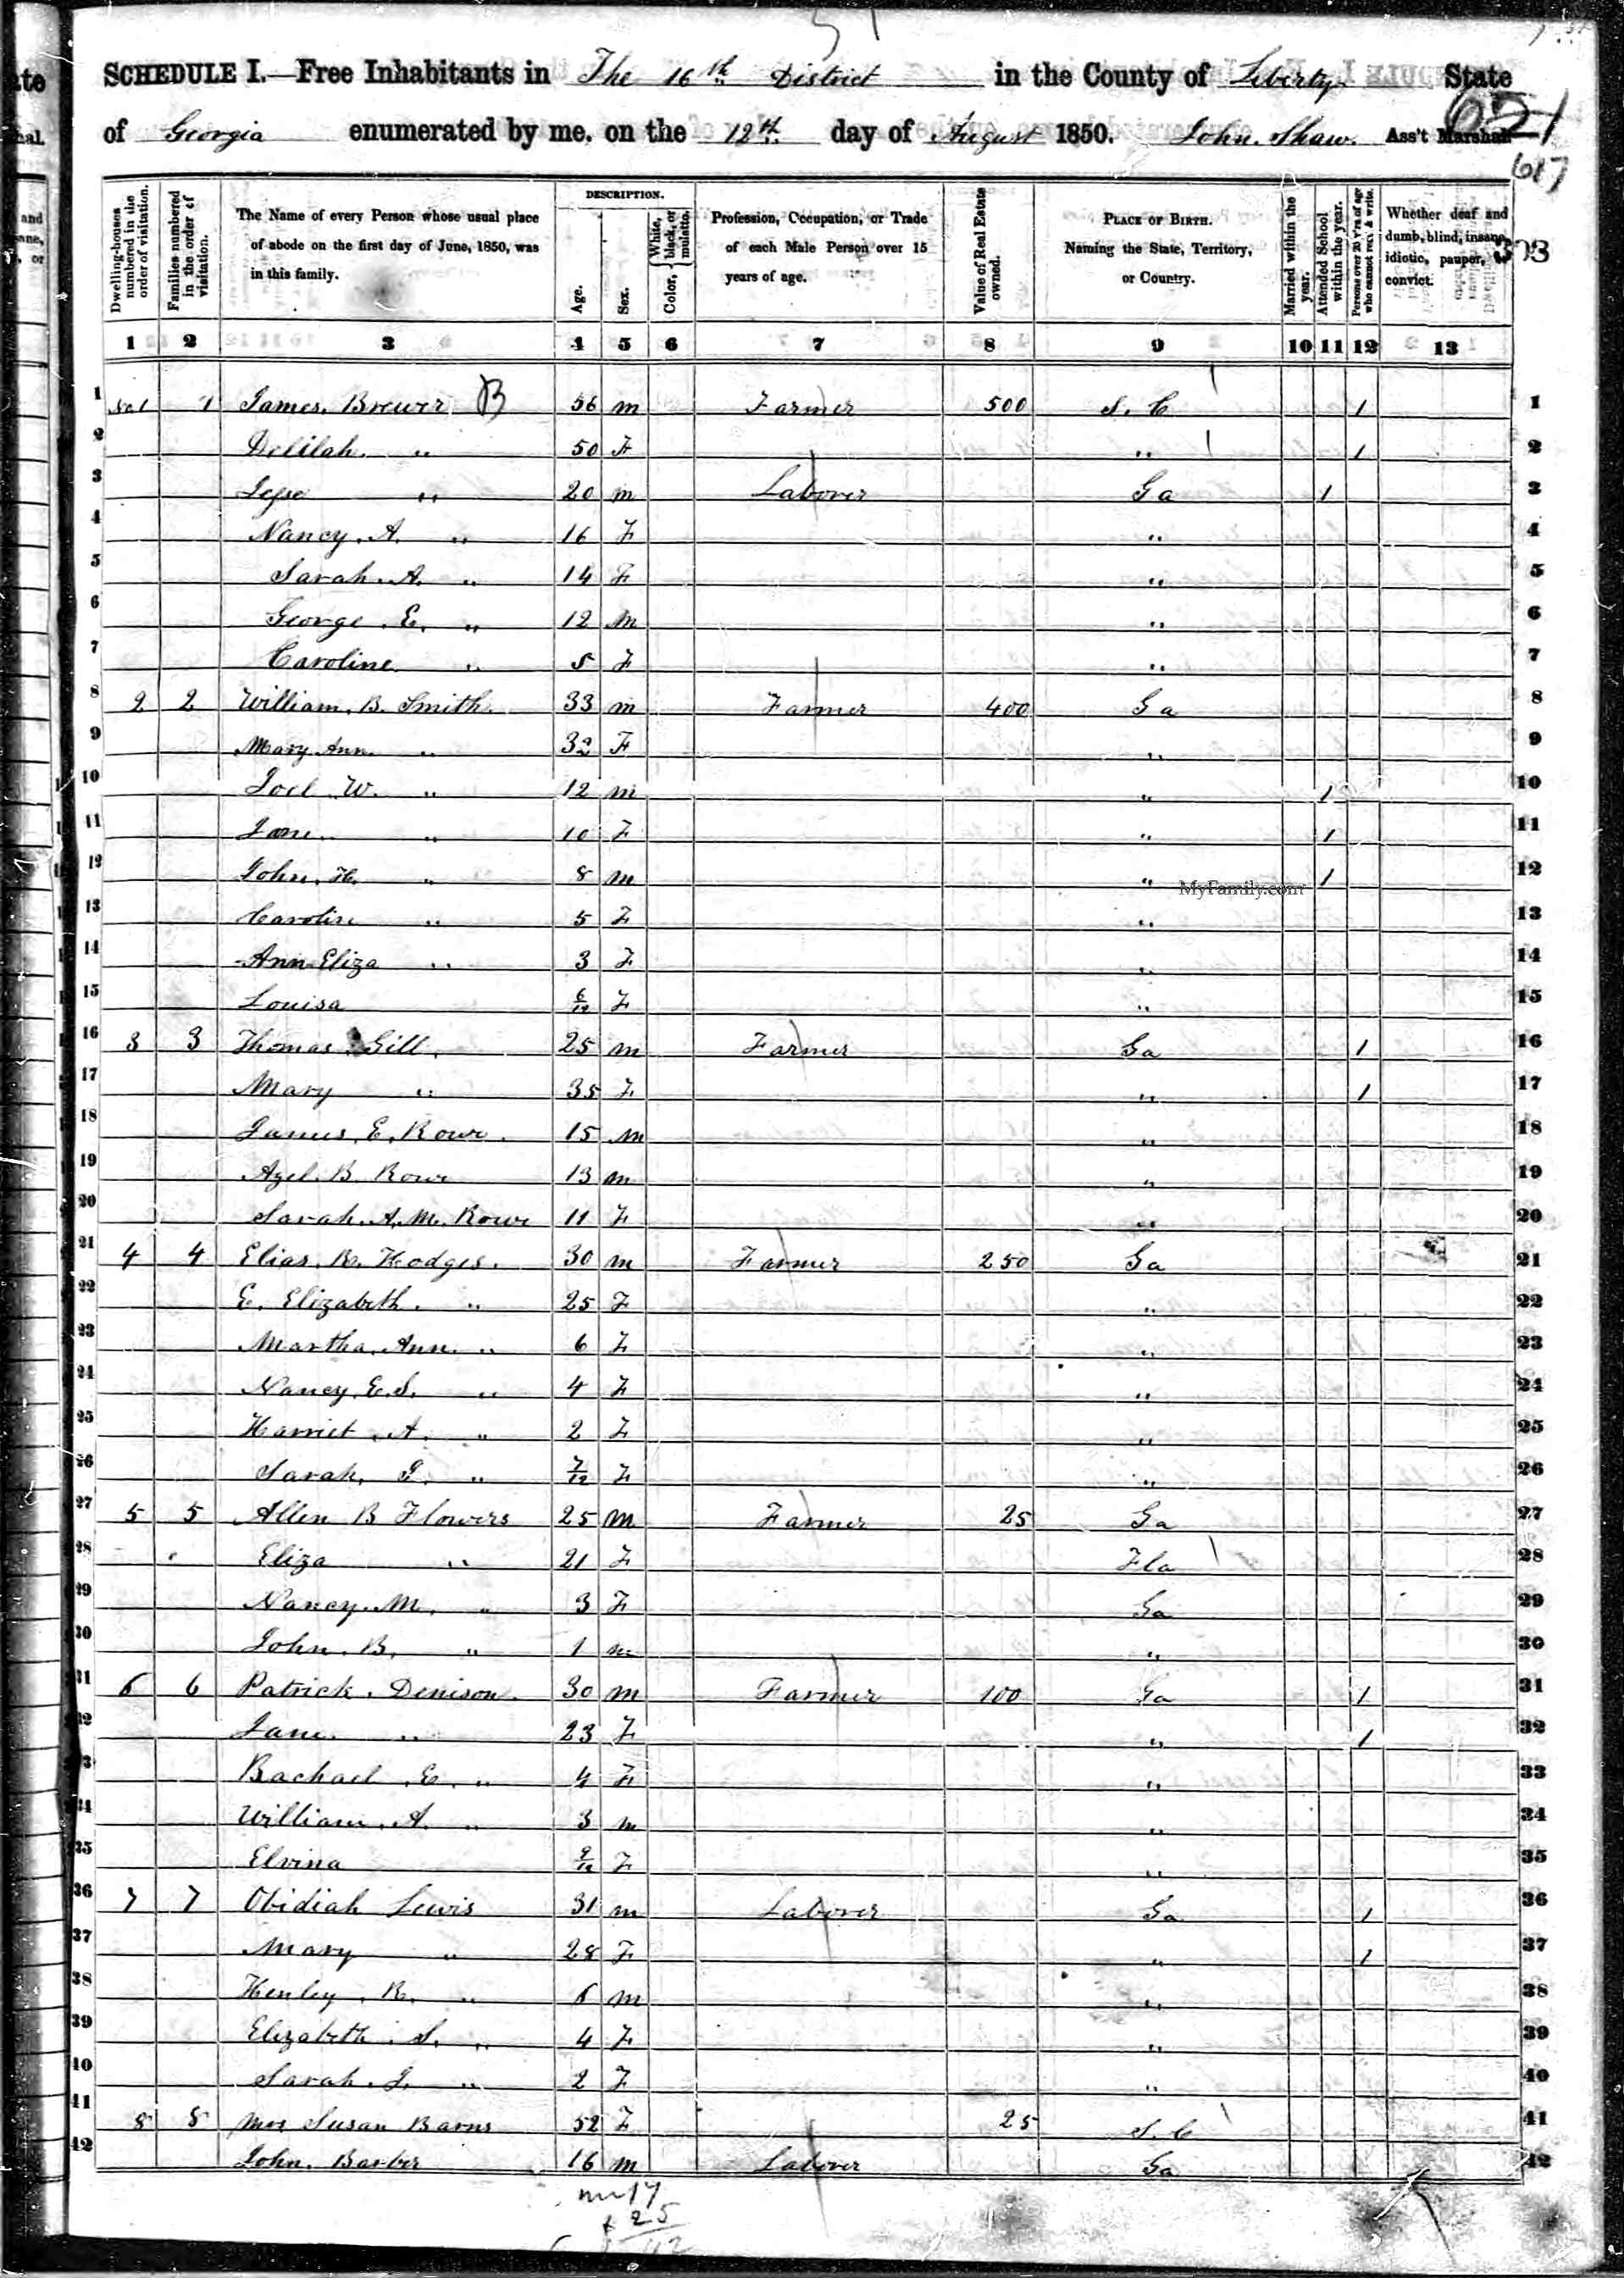 SCHEDULE I.—Free Inhabitants in The 16th District in the County of Liberty State
of Georgia enumerated by me, on the 12th day of August 1850. John Shaw. Ass't Marshal
651
617
303
Dwelling-houses numbered in the order of visitation.
Families numbered in the order of visitation.
The Name of every Person whose usual place of abode on the first day of June, 1850, was in this family.
DESCRIPTION.
Age.
Sex.
Color, { White, black, or mulatto.
Profession, Occupation, or Trade of each Male Person over 15 years of age.
Value of Real Estate owned.
PLACE OF BIRTH. Naming the State, Territory, or Country.
Married within the year.
Attended School within the year.
Persons over 20 y'rs of age who cannot read & write.
Whether deaf and dumb, blind, insane, idiotic, pauper, or convict.
1 2 3 4 5 6 7 8 9 10 11 12 13
1 No 1 1 James. Brewer B 56 m Farmer 500 S. C 1 1
2 Delilah " 50 F " 1 2
3 Jesse " 20 m Laborer Ga 1 3
4 Nancy. A. " 16 F " 4
5 Sarah. A. " 14 F " 5
6 George. E. " 12 m " 6
7 Caroline " 5 F " 7
8 2 2 William. B. Smith. 33 m Farmer 400 Ga 8
9 Mary Ann " 32 F " 9
10 Joel W. " 12 m " 1 10
11 Jane " 10 F " 1 11
12 John. H. " 8 m " 1 12
MyFamily.com
13 Carolin " 5 F " 13
14 Ann Eliza " 3 F " 14
15 Louisa 6/12 F " 15
16 3 3 Thomas Gill. 25 m Farmer Ga 1 16
17 Mary " 35 F " 1 17
18 James. E. Rowe. 15 m " 18
19 Azel. B. Rowe 13 m " 19
20 Sarah. A. M. Rowe 11 F " 20
21 4 4 Elias. R. Hodges. 30 m Farmer 250 Ga 21
22 E. Elizabeth. " 25 F " 22
23 Martha. Ann. " 6 F " 23
24 Nancy. E. S. " 4 F " 24
25 Harriet. A. " 2 F " 25
26 Sarah. J. " 7/12 F " 26
27 5 5 Allen B Flowers 25 m Farmer 25 Ga 27
28 Eliza " 21 F Fla 28
29 Nancy. M. " 3 F Ga 29
30 John. B. " 1 m " 30
31 6 6 Patrick. Denison. 30 m Farmer 100 Ga 1 31
32 Jane " 23 F " 1 32
33 Rachael. E. " 4 F " 33
34 William. A. " 3 m " 34
35 Elvina 9/12 F " 35
36 7 7 Obidiah Lewis 31 m Laborer Ga 1 36
37 Mary " 28 F " 1 37
38 Henley. R. " 6 m " 38
39 Elizabeth. S. " 4 F " 39
40 Sarah. J. " 2 F " 40
41 8 8 Mrs Susan Barns 52 F 25 S. C 41
42 John. Barber 16 m Laborer Ga 42
m 17
f 25
42